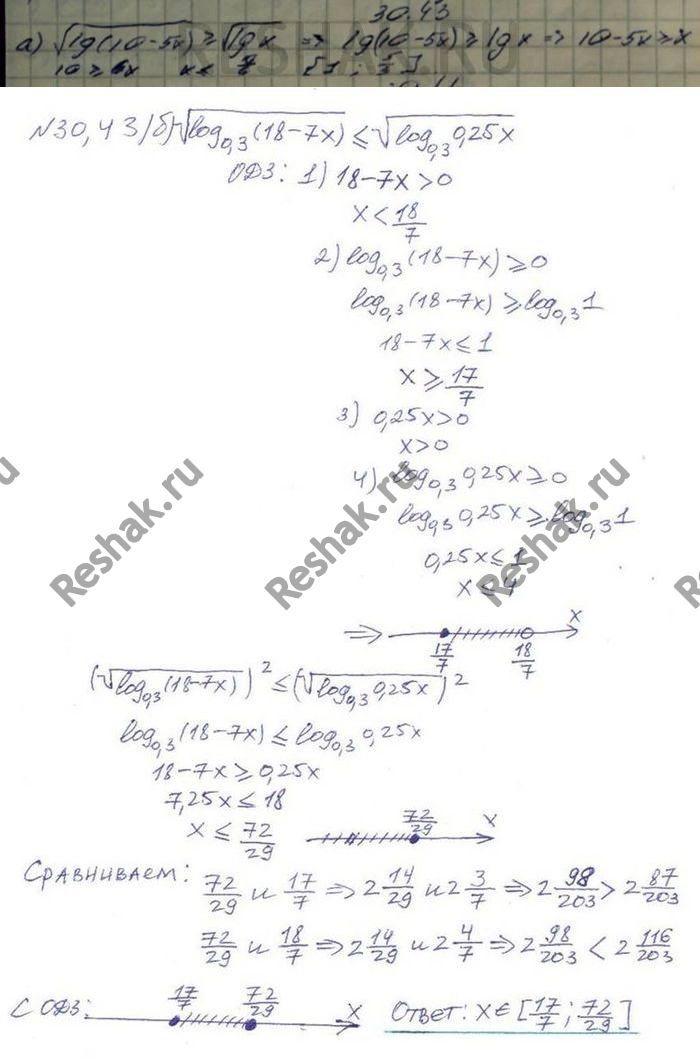 30.43
а) √lg(10-5x) ≥ √lg x ⇒ lg(10-5x) ≥ lg x ⇒ 10-5x ≥ x
10 ≥ 6x
RESHAK.RU
N30,43/б) √log₀,₃(18-7x) ≤ √log₀,₃0,25x
ОДЗ: 1) 18-7x>0
x < 18/7
2) log₀,₃(18-7x) ≥ 0
log₀,₃(18-7x) ≥ log₀,₃1
18-7x ≤ 1
x ≥ 17/7
3) 0,25x>0
x>0
4) log₀,₃0,25x ≥ 0
log₀,₃0,25x ≥ log₀,₃1
0,25x ≤ 1
x ≤ 4
Reshak.ru Reshak.ru Reshak.ru
⇒ 17/7 18/7 x
(√log₀,₃(18-7x))² ≤ (√log₀,₃0,25x)²
log₀,₃(18-7x) ≤ log₀,₃0,25x
18-7x ≥ 0,25x
7,25x ≤ 18
x ≤ 72/29 72/29 x
Сравниваем: 72/29 и 17/7 ⇒ 2 14/29 и 2 3/7 ⇒ 2 98/203 > 2 87/203
72/29 и 18/7 ⇒ 2 14/29 и 2 4/7 ⇒ 2 98/203 < 2 116/203
С ОДЗ: 17/7 72/29 x Ответ: x∈[17/7; 72/29]